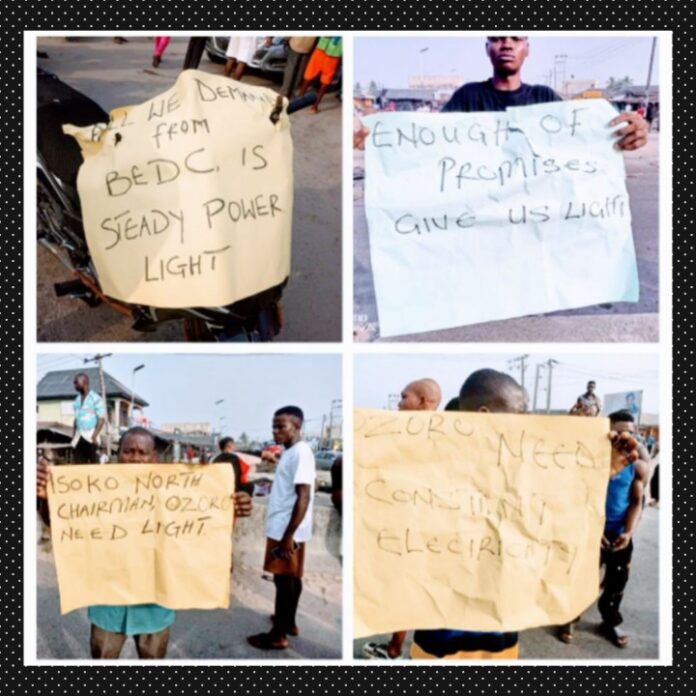 ALL WE DEMAND
from
BEDC, IS
STEADY POWER
LIGHT
ENOUGH OF
PROMISES
GIVE US LIGHT
ISOKO NORTH
CHAIRMAN, OZORO
NEED LIGHT.
OZORO NEED
CONSTANT
ELECIRICITY